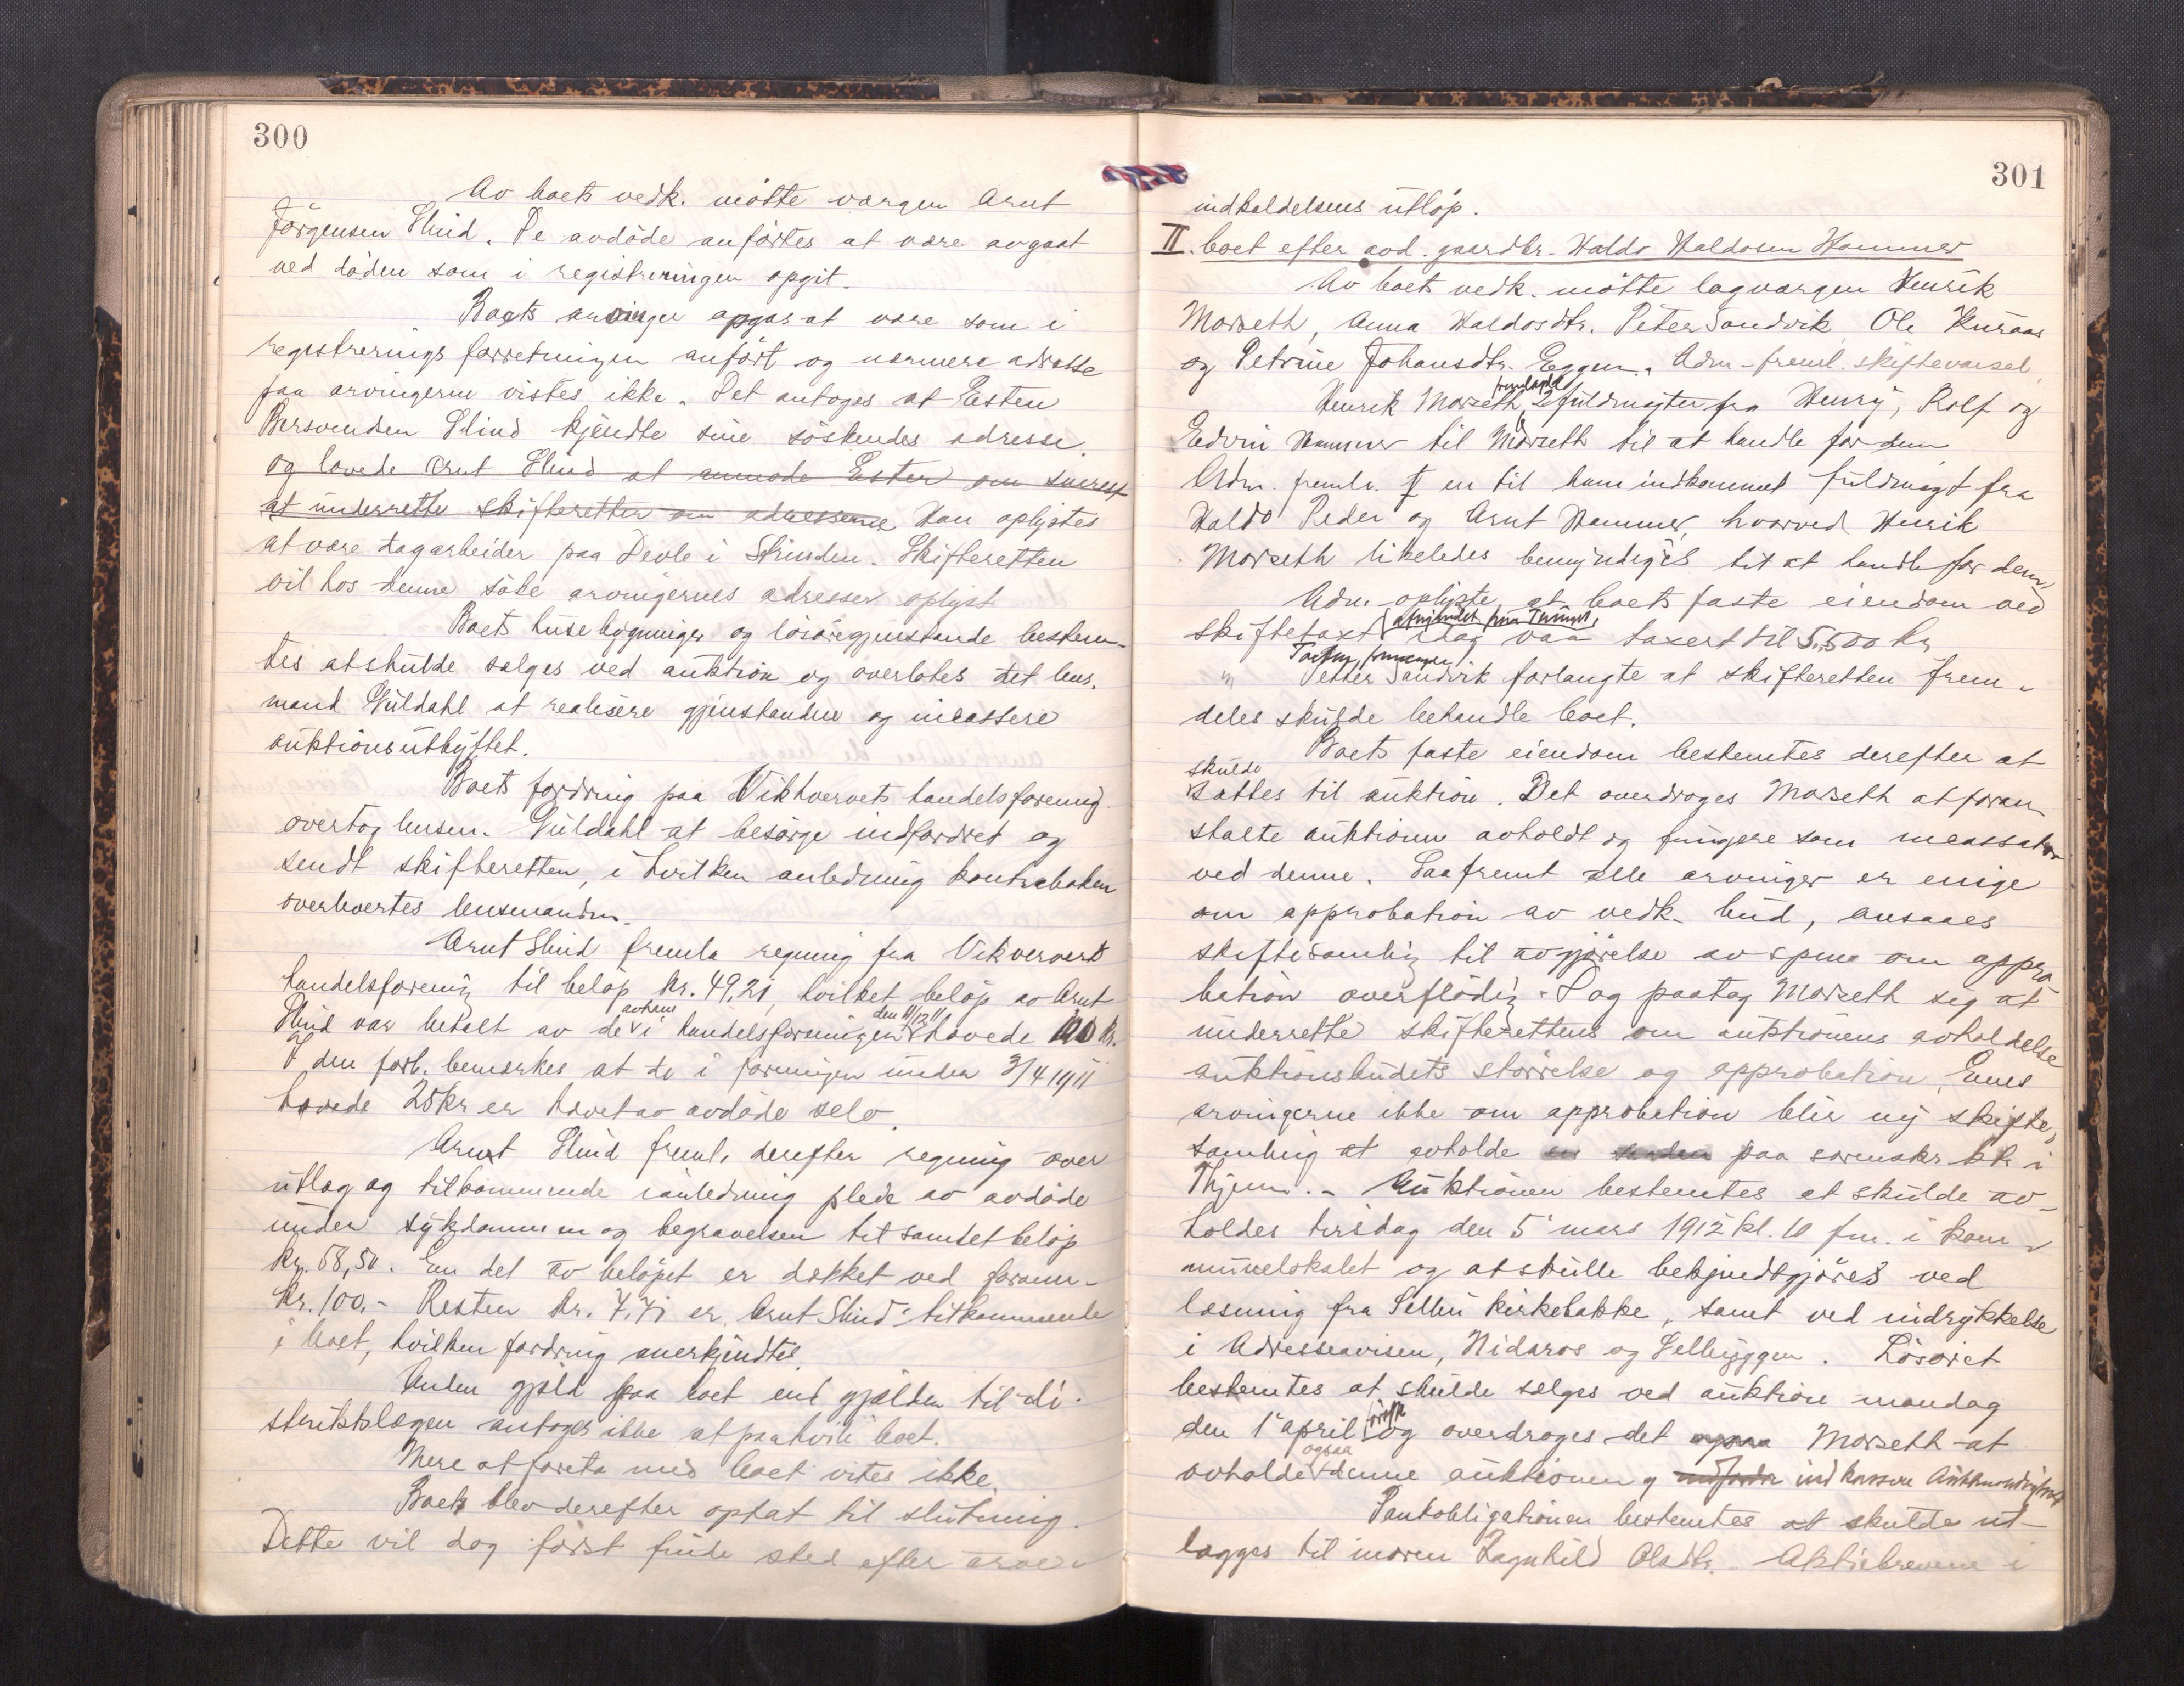 300
Av boets vedk. møtteværgen Arnt
Jørgensen Slind. De avdøde anførtes at være avgaat
ved døden som i registreringen opgit.
Boets arvinger opgas at være som i
registreringsforretningen anført og nærmere adresse
paa arvingerne vistes ikke. Det antoges at Esten
Bersvendsen Slind kjendte sine søskendes adresse.
og lovede Arnt Slind at anmode Esten om snarest
at underrette skifteretten om adresserne Han oplystes
at være dagarbeider paa Devle i Strinden. Skifteretten
vil hos denne søke arvingernes adresser oplyst
Boets husebygninger og løsøregjenstande bestem-
tes at skulde sælges ved auktion og overlotes det lens.
mand Guldahl at realisere gjenstandene og incassere
auktionsutbyttet.
Boets fordring paa Vikhvervets handelsforening
overtog lensm. Guldahl at besørge indfordret og
sendt skifteretten, i hvilken anledning kontraboken
overlevertes lensmanden.
Arnt Slind fremla regning fra Vikvervets
handelsforening til beløp kr. 49,21, hvilket beløp av Arnt
Slind var betalt av de av ham i handelsforeningen den 11/12 11 hævede 100 kr.
I den forb. bemerkes at de i foreningen under 3/4 1911
hævede 25 kr er hævet av avdøde selv.
Arnt Slind freml. derefter regning over
utlæg og tilkommende i anledning pleie av avdøde
under sykdommen og begravelsen til samlet beløp
kr. 58,50. En del av beløpet er dækket ved forann-
kr. 100.- Resten kr. 7.71 er Arnt Slind's tilkommende
i boet, hvilken fordring anerkjendtes.
Anden gjæld paa boet end gjælden til di-
striktslægen antoges ikke at paahvile boet.
Mere at foreta med boet vites ikke.
Boet blev derefter optat til slutning.
Dette vil dog først finde sted efter arve-
301
indkaldelsens utløp.
II. boet efter avd. gaardbr. Haldo Haldosen Hammer
Av boets vedk. møtte lagværgen Henrik
Morseth, Anna Haldosdtr. Peter Sandvik, Ole Kuraas
og Petrine Johansdtr. Eggen. Adm. freml. skiftevarsel
Henrik Morseth fremlagde 2 fuldmagter fra Henry, Rolf og
Edvin Hammer til Morseth til at handle for dem
Adm. freml. en til ham indkommet fuldmagt fra
Haldo Peder og Arnt Hammer, hvorved Henrik
Morseth likeledes bemyndiges til at handle for dem
Adm. oplyste at boets faste eiendom ved
skiftetaxt idag var taxert til 5,500 kr
Petter Sandvik forlangte at skifteretten frem-
deles skulde behandle boet.
Boets faste eiendom bestemtes derefter at
skulde
sættes til auktion. Det overdroges Morseth at foran
stalte auktionen avholdt og fungere som incassator
ved denne. Saafremt alle arvinger er enige
om approbation av vedk. bud, ansaaes
skiftesamling til avgjørelse av spm om appro-
bation overflødig. Og paatog Morseth sig at
underrette skifterettens om auktionens avholdelse
auktionsbudets størrelse og approbation. Enes
arvingerne ikke om approbation blir ny skifte,
samling at avholde paa sorenskr. kt. i
Thjem. - Auktionen bestemtes at skulde av-
holdes tirsdag den 5' mars 1912 kl. 10 fm. i kom-
munelokalet og at skulle bekjendtgjøres ved
læsning fra Selbu kirkebakke, samt ved indrykkelse
i Adresseavisen, Nidaros og Selbyggen. Løsøret
bestemtes at skulde sælges ved auktion mandag
den 1' april og overdroges det Morseth at
avholde ogsaa denne auktionen og indkassere
Pantobligationen bestemtes at skulde ut-
lægges til moren Ragnhild Olsdtr. Aktiebrevene i